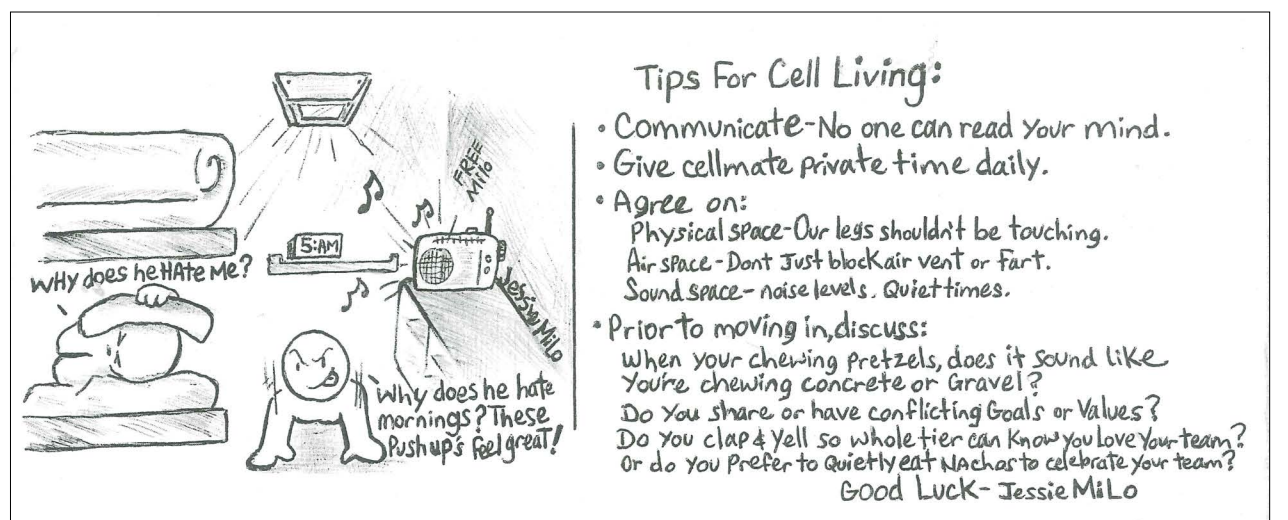 FREE
Milo
5:AM
WHY does he HAte Me?
Jessie MiLo
Why does he hate
mornings? These
Pushup's feel great!
Tips For Cell Living:
• Communicate-No one can read your mind.
• Give cellmate private time daily.
• Agree on:
Physical space-Our legs shouldn't be touching.
Air space-Dont Just block air vent or fart.
Sound space-noise levels. Quiet times.
• Prior to moving in, discuss:
When your chewing pretzels, does it sound like
You're chewing concrete or Gravel?
Do You share or have conflicting Goals or Values?
Do you clap & Yell so whole tier can Know you Love Your team?
Or do you Prefer to Quietly eat NAchos to celebrate Your team?
Good Luck- Jessie MiLo